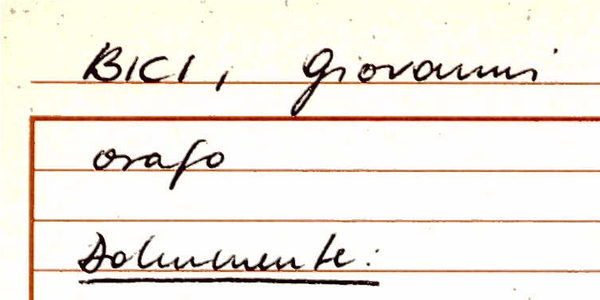 BICI, Giovanni
orafo
Dokumente: